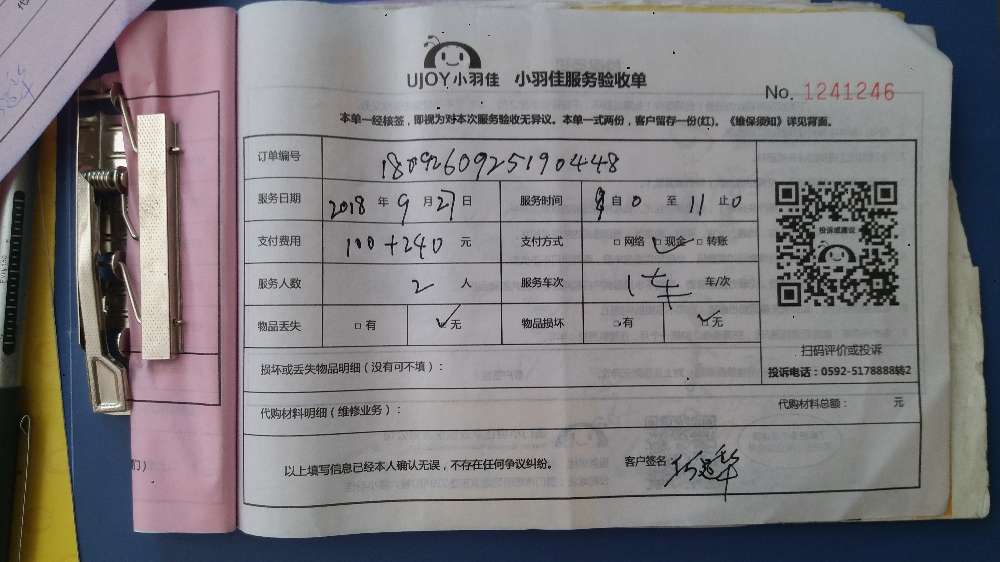 UJOY小羽佳 小羽佳服务验收单
No. 1241246
本单一经核签，即视为对本次服务验收无异议。本单一式两份，客户留存一份(红)。《维保须知》详见背面。
订单编号 1809260925190448
服务日期 2018年9月27日 服务时间 自0至11止0
支付费用 100+240元 支付方式 □网络 □现金 □转账
服务人数 2人 服务车次 1车 车/次
物品丢失 □有 □无 物品损坏 □有 □无
投诉或建议
扫码评价或投诉
投诉电话：0592-5178888转2
损坏或丢失物品明细（没有可不填）：
代购材料明细（维修业务）： 代购材料总额： 元
以上填写信息已经本人确认无误，不存在任何争议纠纷。 客户签名：